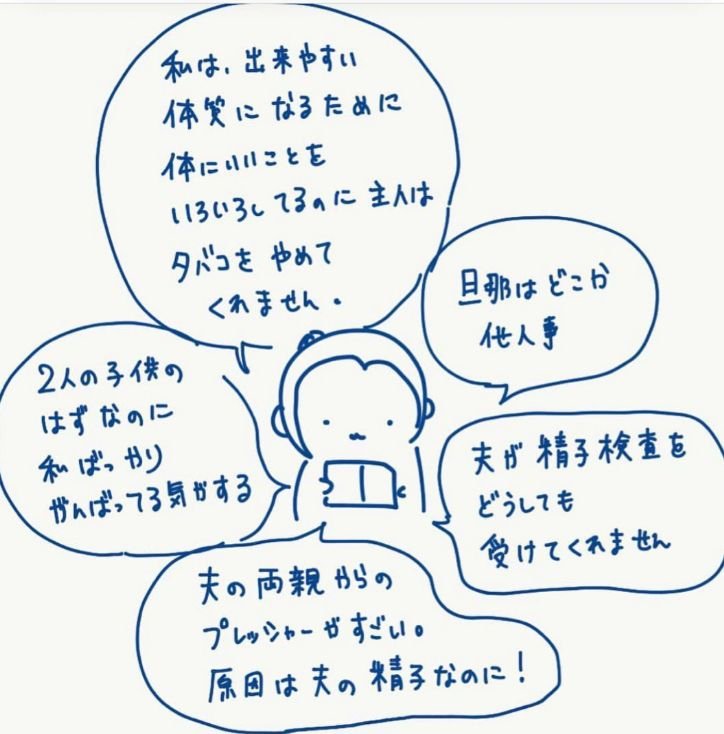 私は、出来やすい
体質になるために
体にいいことを
いろいろしてるのに主人は
タバコをやめて
くれません。
旦那はどこか
他人事
2人の子供の
はずなのに
私ばっかり
がんばってる気がする
夫が精子検査を
どうしても
受けてくれません
夫の両親からの
プレッシャーがすごい。
原因は夫の精子なのに！